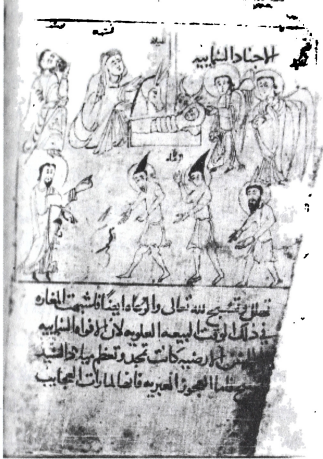 الاجناد السماييه
رعاه
تهلل وتسبح لله تعالى والرعاه ايضا فاشبهت المغاره
في ذلك الوقت البيعه العلويه لان الافواه السماييه
الارضيه كانت تمجد وتعظم ميلاد السيد
العجوز العبريه فلما رات العجايب